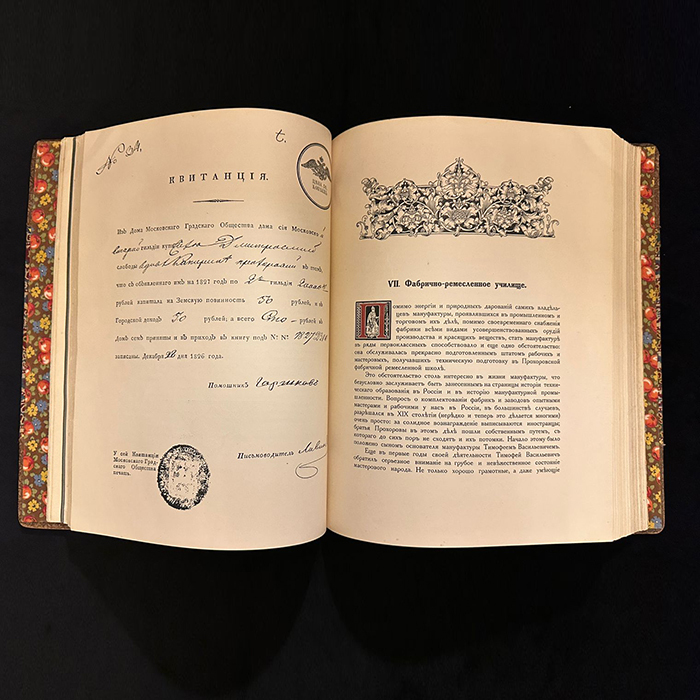 № 34.
КВИТАНЦІЯ.
Изъ Дома Московскаго Градскаго Общества дана сія Московской
гильдіи
слободы
въ томъ,
что съ объявленнаго имъ на 1827 годъ по гильдіи
рублей капитала на Земскую повинность 50 рублей, и въ
Городской доходъ 50 рублей; а всего рублей въ
Домъ семъ приняты и въ приходъ въ книгу подъ №
записаны. Декабря дня 1826 года.
Помощникъ
Письмоводитель
У сей Квитанціи
Московскаго Град-
скаго Общества
печать.
VII. Фабрично-ремесленное училище.
Помимо энергіи и природныхъ дарованій самихъ владѣль-
цевъ мануфактуры, проявлявшихся въ промышленномъ и
торговомъ ихъ дѣлѣ, помимо своевременнаго снабженія
фабрики всѣми видами усовершенствованныхъ орудій
производства и красящихъ веществъ, стать мануфактурѣ
въ ряды первоклассныхъ способствовало и еще одно обстоятельство:
она обслуживалась прекрасно подготовленнымъ штатомъ рабочихъ и
мастеровыхъ, получавшихъ техническую подготовку въ Прохоровской
фабричной ремесленной школѣ.
Это обстоятельство столь интересно въ жизни мануфактуры, что
безусловно заслуживаетъ быть занесеннымъ на страницы исторіи техни-
ческаго образованія въ Россіи и въ исторію мануфактурной промыш-
ленности. Вопросъ о комплектованіи фабрикъ и заводовъ опытными
мастерами и рабочими у насъ въ Россіи, въ большинствѣ случаевъ,
разрѣшался въ XIX столѣтіи (нерѣдко и теперь это дѣлается многими)
очень просто: за солидное вознагражденіе выписываются иностранцы;
братья Прохоровы въ этомъ дѣлѣ пошли собственнымъ путемъ, съ
котораго до сихъ поръ не сходятъ и ихъ потомки. Начало этому было
положено сыномъ основателя мануфактуры Тимофеемъ Васильевичемъ.
Еще въ первые годы своей дѣятельности Тимофей Васильевичъ
обратилъ серьезное вниманіе на грубое и невѣжественное состояніе
мастерового народа. Не только хорошо грамотные, а даже умѣющіе